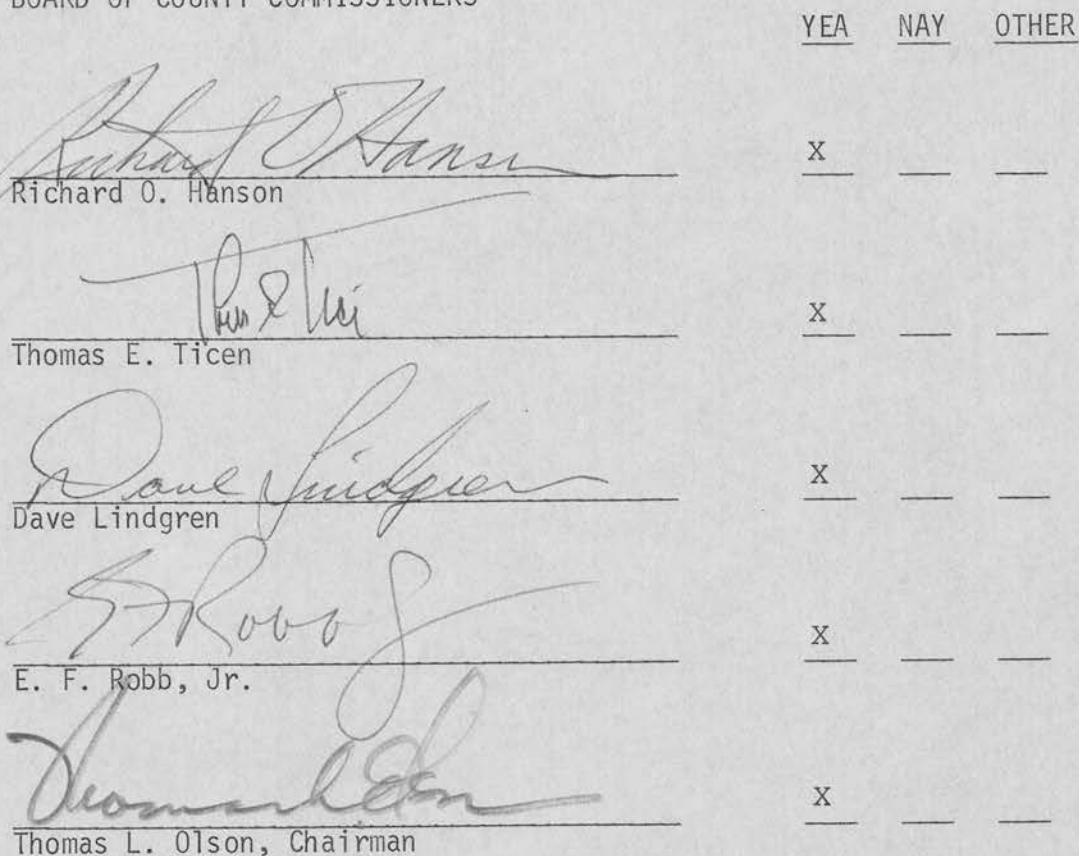 BOARD OF COUNTY COMMISSIONERS
YEA NAY OTHER
Richard O Hanson X
Richard O. Hanson
X
Thomas E. Ticen
Dave Lindgren X
Dave Lindgren
E F Robb Jr X
E. F. Robb, Jr.
Thomas L Olson X
Thomas L. Olson, Chairman